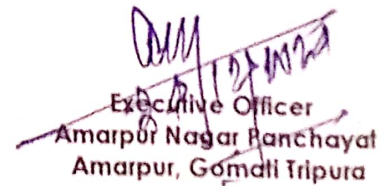 Executive Officer
Amarpur Nagar Panchayat
Amarpur, Gomati Tripura